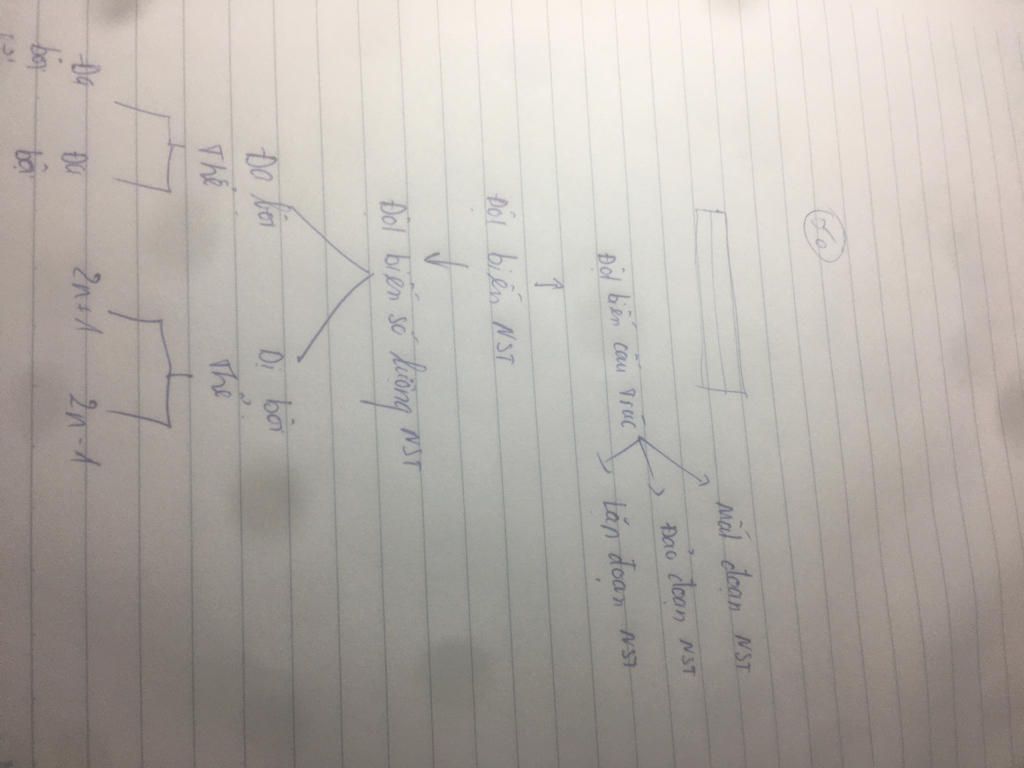 Mất đoạn NST
Đảo đoạn NST
Đột biến cấu trúc
lặp đoạn NST
Đột biến NST
Đột biến số lượng NST
Đa bội
Thể
Dị bội
Thể
Đa
bội
Đa
bội
2n+1
2n-1